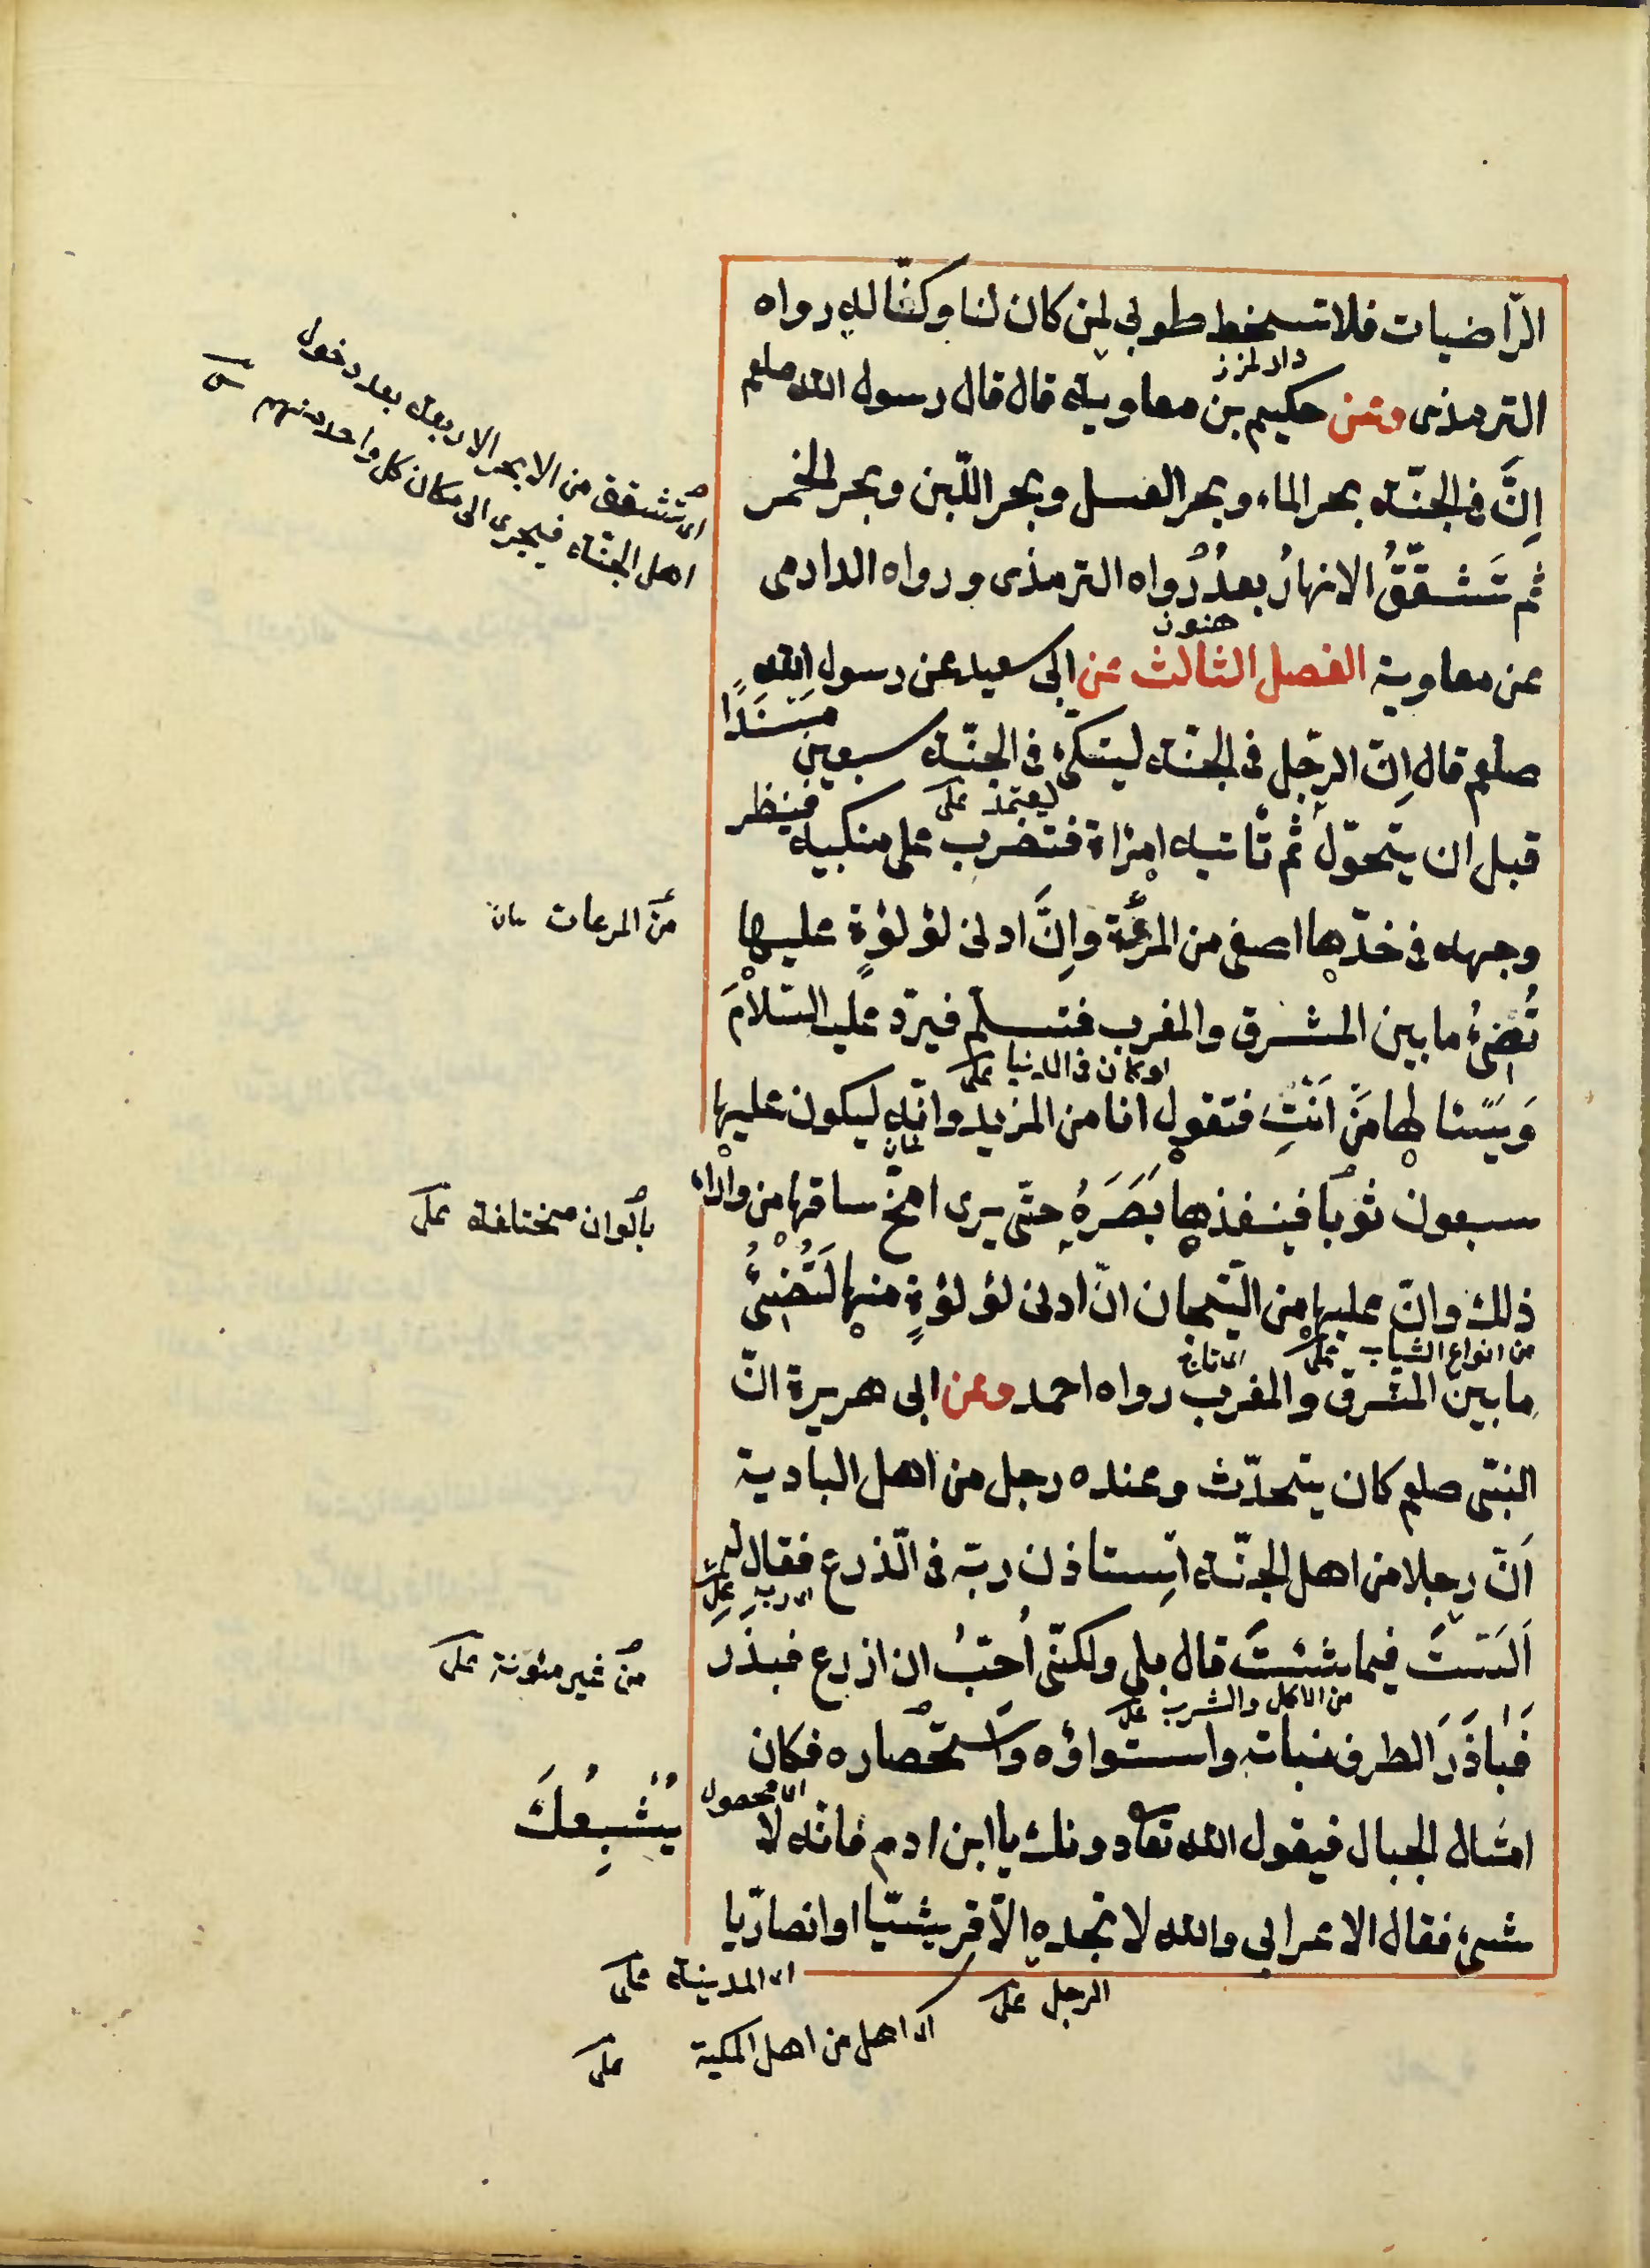 الرّاضيات فلا تسخط طوبى لمن كان لنا وكنّا له رواه
الترمذى وعن حكيم بن معاوية قال قال رسول الله صلعم
اِنَّ فى الجنّة بحر الماء وبحر العسل وبحر اللّبن وبحر الخمر
ثم تَشقَّقُ الانهارُ بعدُ رواه الترمذى ورواه الدارمى
عن معاوية الفصل الثالث عن ابى سعيد عن رسول الله
صلعم قال اِنّ الرّجل فى الجنّة ليتكئ فى الجنّة سبعين مسنَدًا
قبل ان يتحوّل ثم تأتيه امراة فتضرب على منكبيه فينظر
وجهه فى خدّها اصفى من المرءَة واِنَّ ادنى لؤلؤةٍ عليها
تُضئُ ما بين المشرق والمغرب فتسلّم فيردّ عليه السّلامَ
وَيَسئا لها مَنْ اَنْتِ فتقول انا من المزيد وانّه ليكون عليها
سبعون ثوبًا فينفذها بَصَرَهُ حتّى يرى امخّ ساقها من وراء
ذلك وانّ عليها من التّيجان انّ ادنى لؤلؤةٍ منها لَتُضئُ
ما بين المشرق والمغرب رواه احمد وعن ابى هريرة انّ
النبىّ صلعم كان يتحدّث وعنده رجل من اهل البادية
اَنّ رجلا من اهل الجنّة اِستاذن ربّه فى الزّرع فقال له
اَلَسْتَ فيما شئتَ قال بلى ولكنّى اُحبّ ان ازرع فبذر
فَبَاذَرَ الطرف نباته واستواؤه وَاستحصاره فكان
امثال الجبال فيقول الله تعا دونك يا ابن ادم فانّه لا
يُشْبِعُكَ
شئ فقال الاعرابى والله لا تجده الاّ قريشيّا او انصاريّا
اى تُشقق من الابحر الاربعة بعد دخول
اهل الجنّة فيجرى الى مكان كل واحد منهم
ليعتمد على
من المرءات
او كان فى الدنيا على
بألوان مختلفة على
من انواع الثياب على
اى تاج
اى ربه على
من غير مئونة على
من الاكل والشرب على
اى محصول
اى المدينة على
الرجل على
اى اهل من اهل المكية على